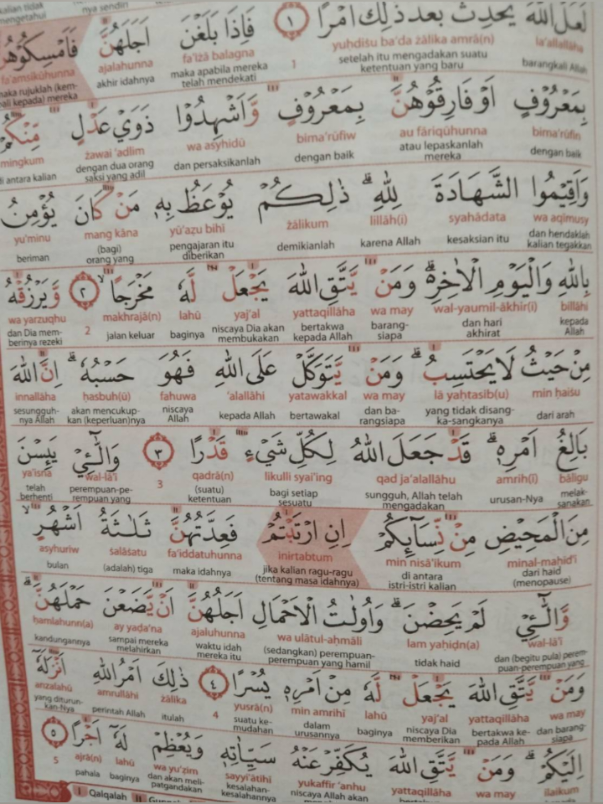 لَعَلَّ اللّٰهَ يُحْدِثُ بَعْدَ ذٰلِكَ اَمْرًا ١ فَاِذَا بَلَغْنَ اَجَلَهُنَّ فَاَمْسِكُوْهُنَّ
la'allallāha yuhdiṡu ba'da żālika amrā(n) 1 fa'iżā balagna ajalahunna fa'amsikūhunna
barangkali Allah setelah itu mengadakan suatu ketentuan yang baru maka apabila mereka telah mendekati akhir idahnya maka rujuklah (kembali kepada) mereka
بِمَعْرُوْفٍ اَوْ فَارِقُوْهُنَّ بِمَعْرُوْفٍ وَّاَشْهِدُوْا ذَوَيْ عَدْلٍ مِّنْكُمْ
bima'rūfin au fāriqūhunna bima'rūfiw wa asyhidū żawai 'adlim mingkum
dengan baik atau lepaskanlah mereka dengan baik dan persaksikanlah dengan dua orang saksi yang adil di antara kalian
وَاَقِيْمُوا الشَّهَادَةَ لِلّٰهِ ۗ ذٰلِكُمْ يُوْعَظُ بِهٖ مَنْ كَانَ يُؤْمِنُ
wa aqīmusy syahādata lillāh(i) żālikum yū'aẓu bihī mang kāna yu'minu
dan hendaklah kalian tegakkan kesaksian itu karena Allah demikianlah pengajaran itu diberikan (bagi) orang yang beriman
بِاللّٰهِ وَالْيَوْمِ الْاٰخِرِ ەۗ وَمَنْ يَّتَّقِ اللّٰهَ يَجْعَلْ لَّهٗ مَخْرَجًا ۙ ٢ وَّيَرْزُقْهُ
billāhi wal-yaumil-ākhir(i) wa may yattaqillāha yaj'al lahū makhrajā(n) 2 wa yarzuqhu
kepada Allah dan hari akhirat barangsiapa bertakwa kepada Allah niscaya Dia akan membukakan baginya jalan keluar dan Dia memberinya rezeki
مِنْ حَيْثُ لَا يَحْتَسِبُ ۗ وَمَنْ يَّتَوَكَّلْ عَلَى اللّٰهِ فَهُوَ حَسْبُهٗ ۗ اِنَّ اللّٰهَ
min ḥaiṡu lā yaḥtasib(u) wa may yatawakkal 'alallāhi fahuwa ḥasbuh(ū) innallāha
dari arah yang tidak disangka-sangkanya dan barangsiapa bertawakal kepada Allah niscaya Allah akan mencukupkan (keperluan)nya sesungguhnya Allah
بَالِغُ اَمْرِهٖ ۗ قَدْ جَعَلَ اللّٰهُ لِكُلِّ شَيْءٍ قَدْرًا ٣ وَالّٰۤـِٔيْ يَىِٕسْنَ
bāligu amrih(ī) qad ja'alallāhu likulli syai'ing qadrā(n) 3 wal-lā'ī ya'isna
melaksanakan urusan-Nya sungguh, Allah telah mengadakan bagi setiap sesuatu (suatu) ketentuan perempuan-perempuan yang telah berhenti
مِنَ الْمَحِيْضِ مِنْ نِّسَاۤىِٕكُمْ اِنِ ارْتَبْتُمْ فَعِدَّتُهُنَّ ثَلٰثَةُ اَشْهُرٍ ۙ
minal-mahīḍi min nisā'ikum inirtabtum fa'iddatuhunna ṡalāṡatu asyhuriw
dari haid (menopause) di antara istri-istri kalian jika kalian ragu-ragu (tentang masa idahnya) maka idahnya (adalah) tiga bulan
وَّالّٰۤـِٔيْ لَمْ يَحِضْنَ ۗ وَاُولَاتُ الْاَحْمَالِ اَجَلُهُنَّ اَنْ يَّضَعْنَ حَمْلَهُنَّ ۗ
wal-lā'ī lam yahiḍn(a) wa ulātul-aḥmāli ajaluhunna ay yaḍa'na ḥamlahunn(a)
dan (begitu pula) perempuan-perempuan yang tidak haid (sedangkan) perempuan-perempuan yang hamil waktu idah mereka itu sampai mereka melahirkan kandungannya
وَمَنْ يَّتَّقِ اللّٰهَ يَجْعَلْ لَّهٗ مِنْ اَمْرِهٖ يُسْرًا ٤ ذٰلِكَ اَمْرُ اللّٰهِ اَنْزَلَهٗٓ
wa may yattaqillāha yaj'al lahū min amrihī yusrā(n) 4 żālika amrullāhi anzalahū
dan barangsiapa bertakwa kepada Allah niscaya Dia memberikan baginya dalam urusannya suatu kemudahan itulah perintah Allah yang diturunkan-Nya
اِلَيْكُمْ ۗ وَمَنْ يَّتَّقِ اللّٰهَ يُكَفِّرْ عَنْهُ سَيِّاٰتِهٖ وَيُعْظِمْ لَهٗٓ اَجْرًا ٥
ilaikum wa may yattaqillāha yukaffir 'anhu sayyi'ātihī wa yu'ẓim lahū ajrā(n) 5
niscaya Allah akan kesalahan-kesalahannya dan akan melipatgandakan baginya pahala
Qalqalah